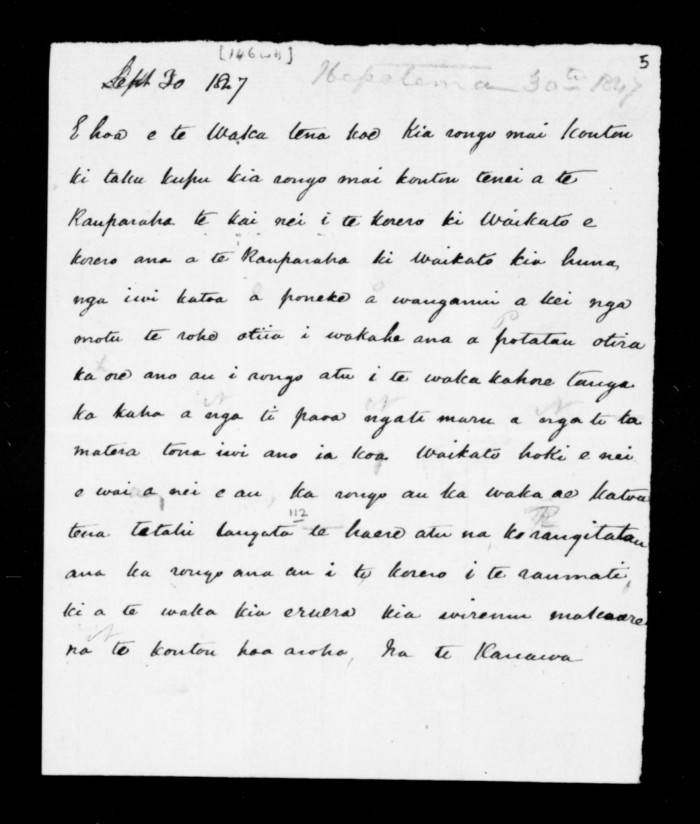 [146WH]
5
Sept 30 1847 Hepetema 30th 1847
E hoa e te Waka tena koe kia rongo mai koutou
ki taku kupu kia rongo mai koutou tenei a te
Rauparaha te kai nei i te korero ki Waikato e
korero ana a te Rauparaha ki Waikato kia huna,
nga iwi katoa a poneke a wanganui a kei nga
motu te rohe otiia i wakahe ana a potatau otira
ka ore ano au i rongo atu i te waka kahore tanga
ka kaha a nga ti paoa ngati maru a nga ti ta
matera tona iwi ano ia koa, Waikato hoki e nei
o wai a nei e au, ka rongo au ka waka ae katoa
tena tetahi tangata te haere atu na ko rangitatau
112
ana ka rongo ana au i te korero i te raumati,
ki a te waka kia eruera kia wiremu makoare
na te koutou hoa aroha, Na te Kanawa